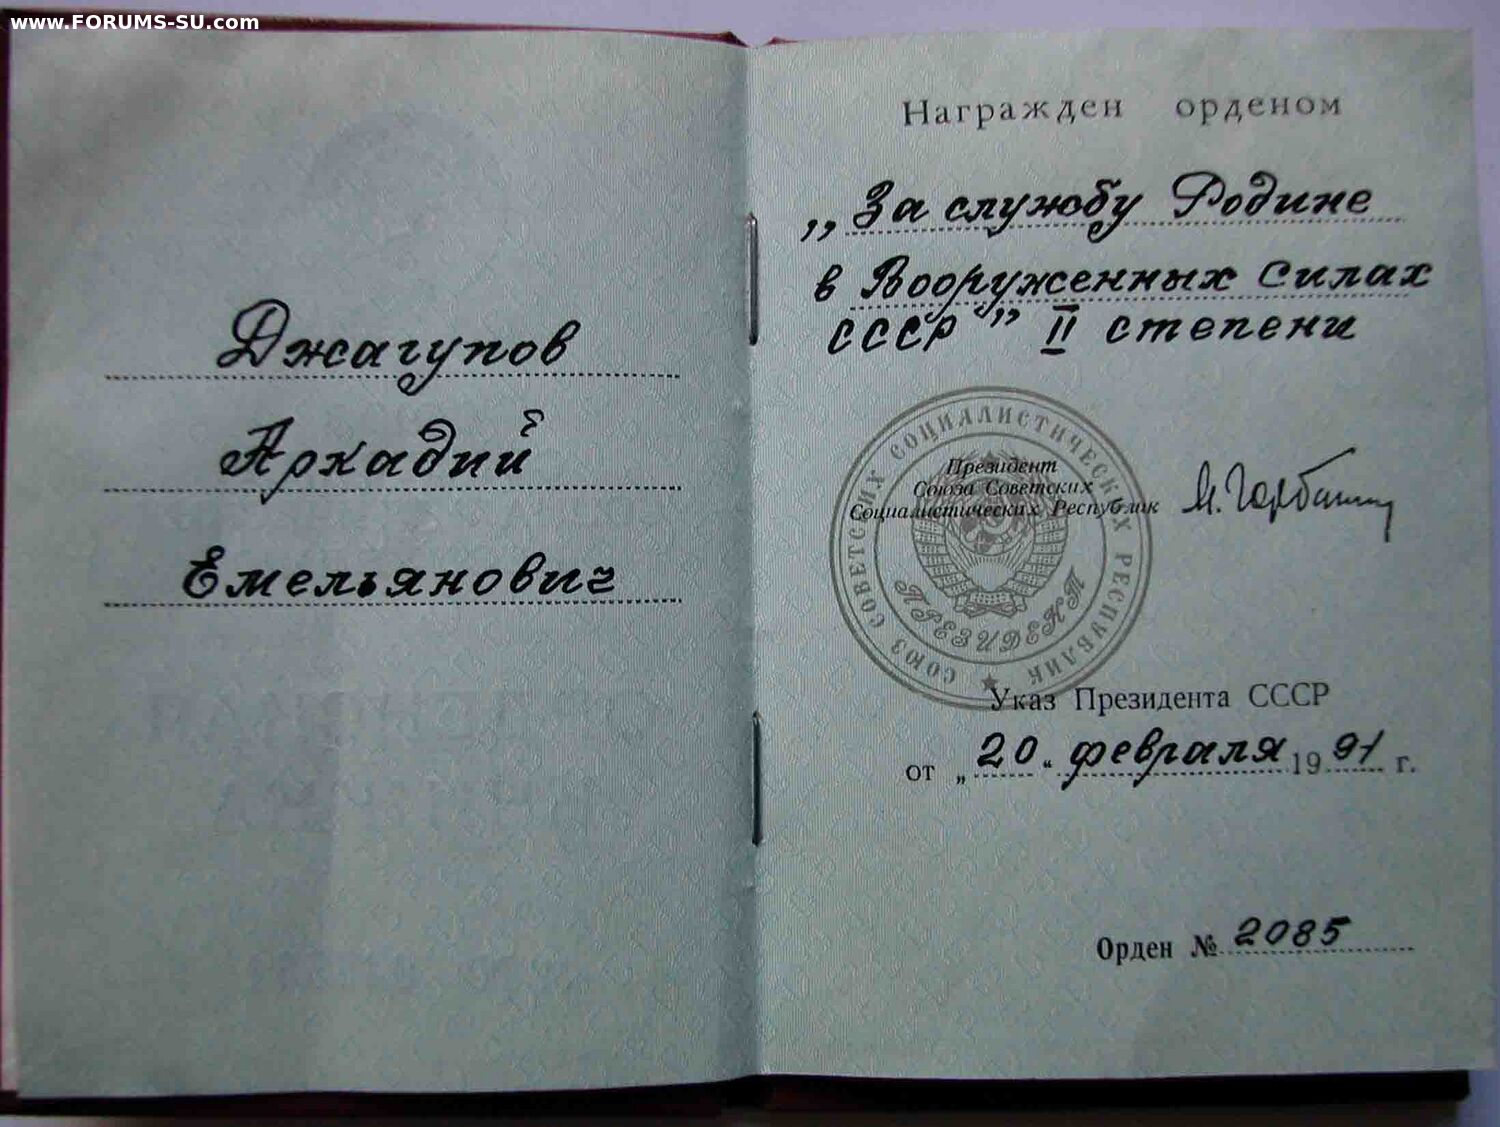 www.FORUMS-SU.com
Джагупов
Аркадий
Емельянович
Награжден орденом
„За службу Родине
в Вооруженных Силах
СССР" II степени
СОЮЗ СОВЕТСКИХ СОЦИАЛИСТИЧЕСКИХ РЕСПУБЛИК
ПРЕЗИДЕНТ
Президент
Союза Советских
Социалистических Республик
М. Горбачев
Указ Президента СССР
от „20“ февраля 1991 г.
Орден № 2085